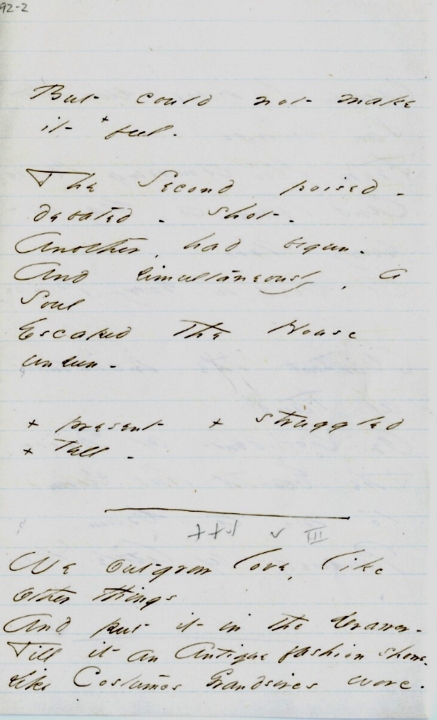 92-2
But could not make
it + feel.
The Second poised -
debated - shot -
Another, had begun -
And simultaneously, a
Soul
Escaped the House
unseen -
+ present + struggled
+ Tell -
+++ ✓ III
We outgrow love, like
other things
And put it in the Drawer -
Till it an Antique fashion shows -
Like Costumes Grandsires wore -